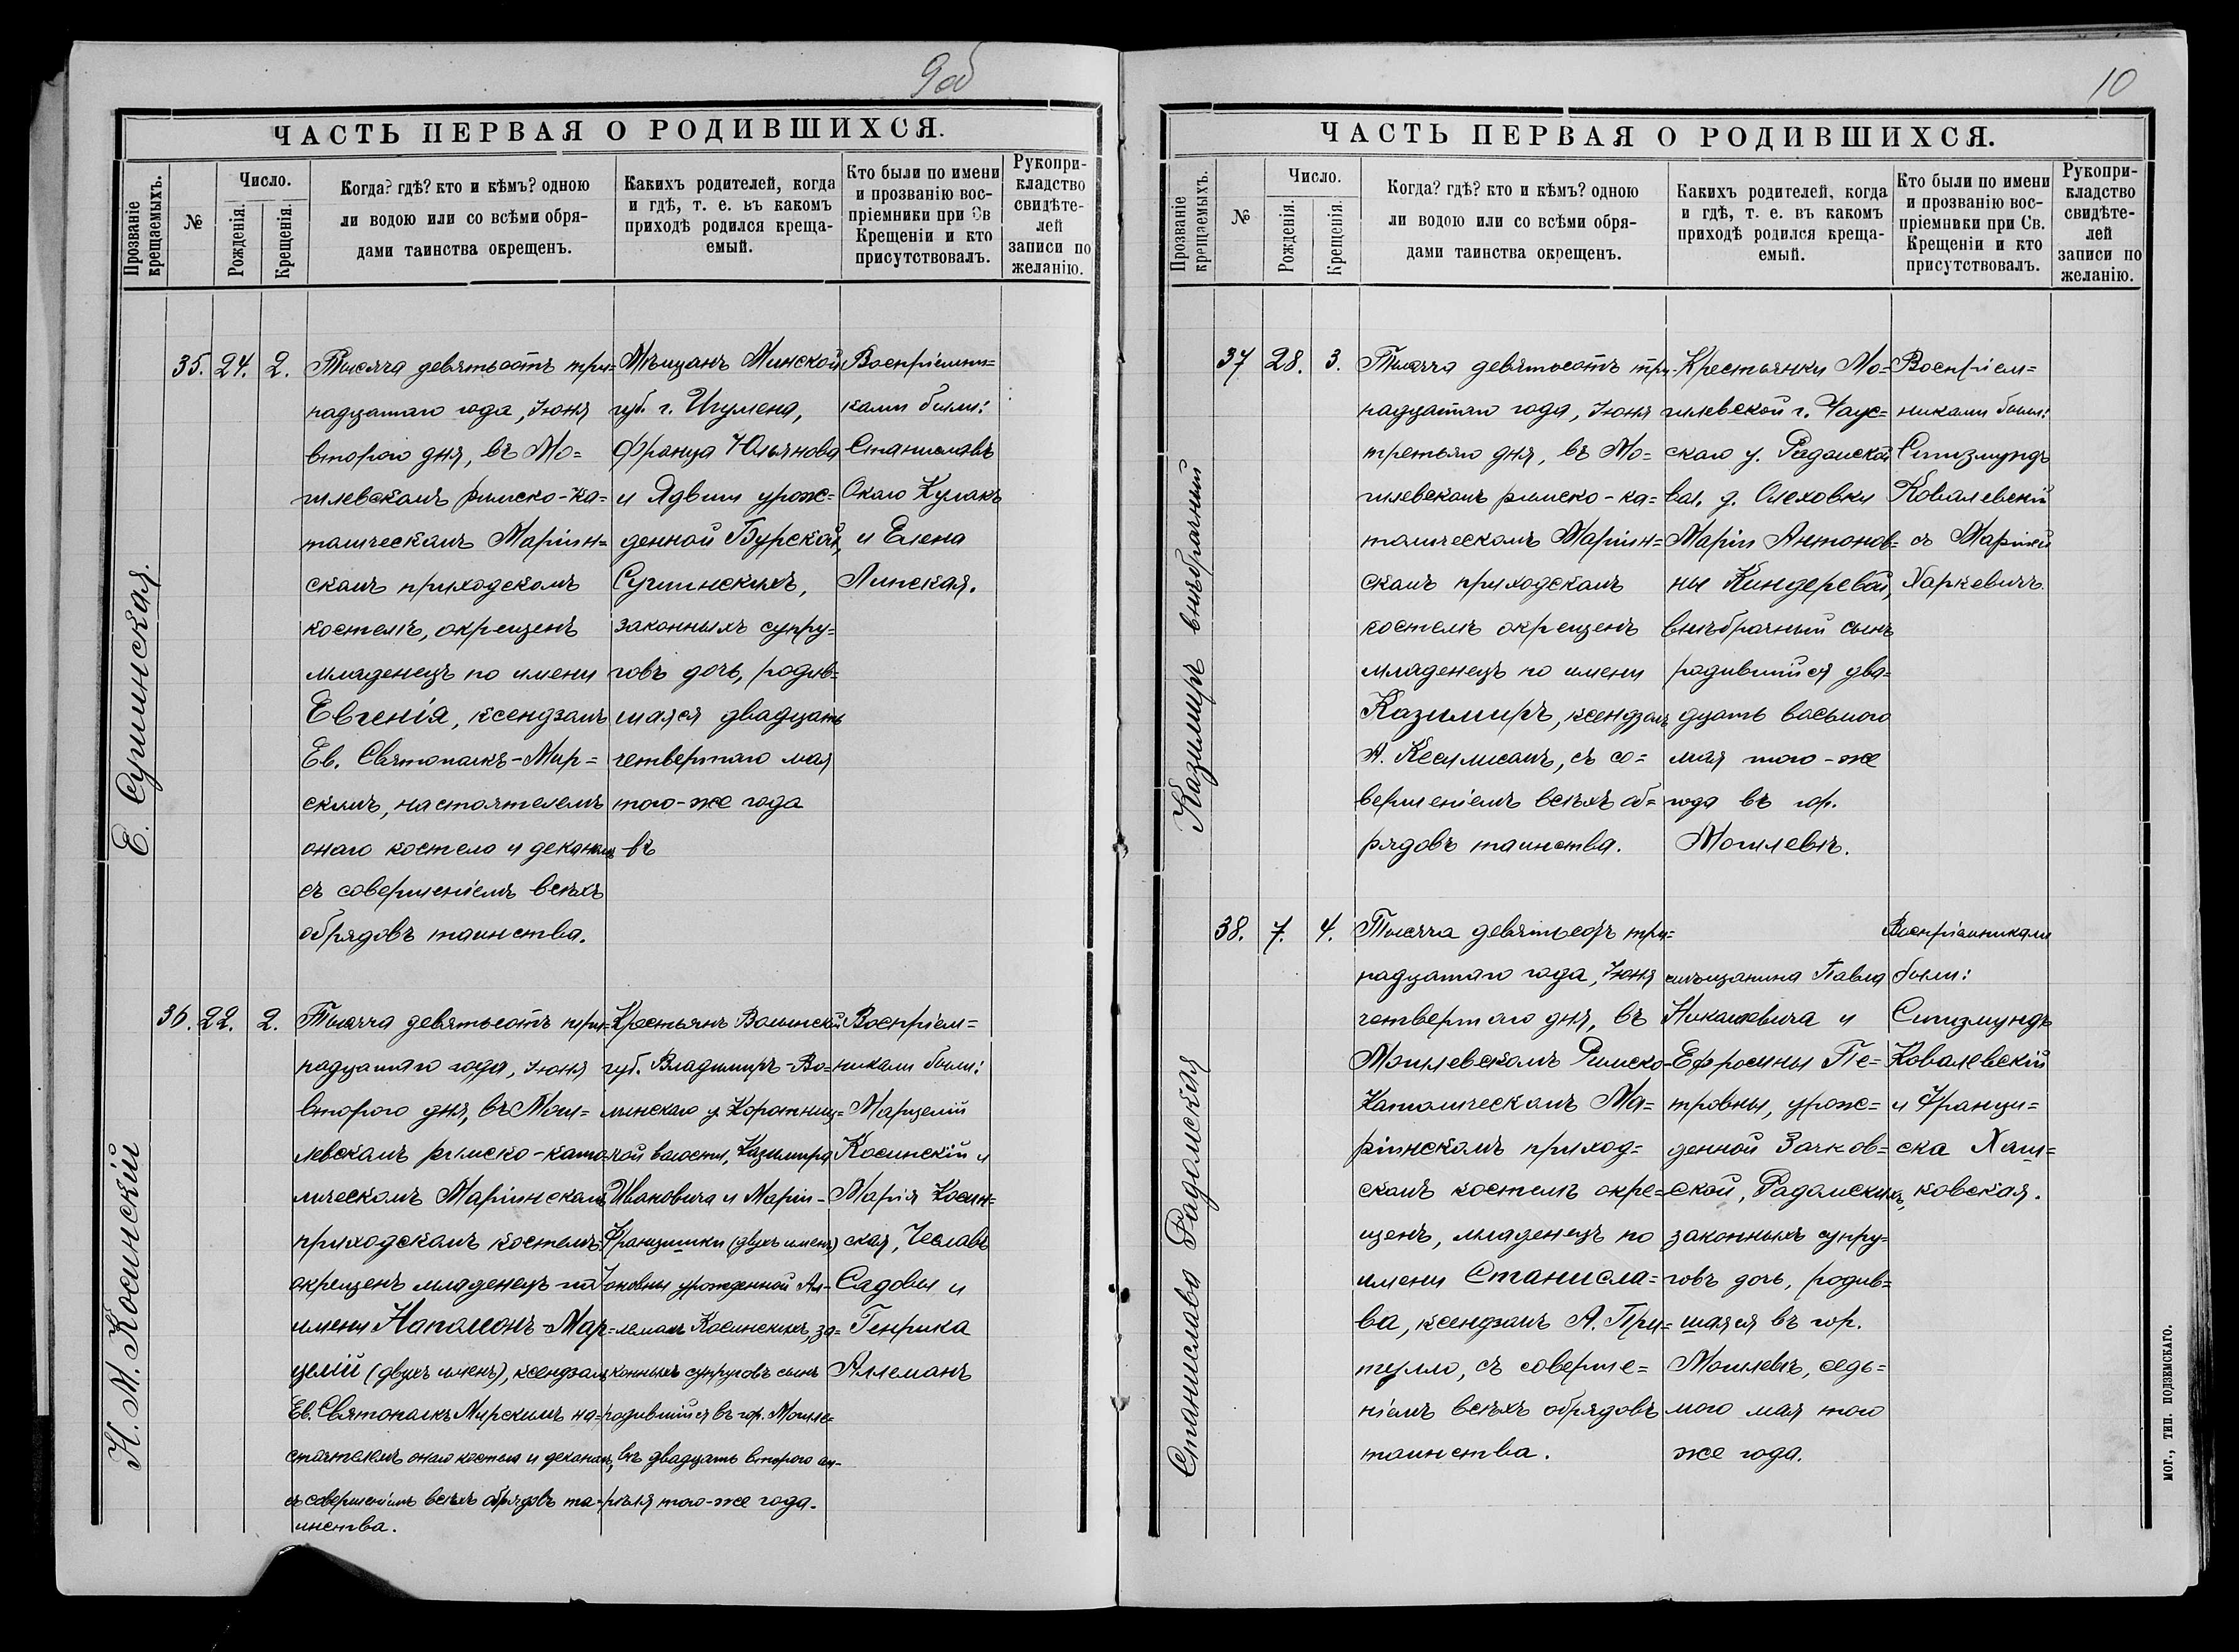 9об
ЧАСТЬ ПЕРВАЯ О РОДИВШИХСЯ.
Прозваніе крещаемыхъ.
№
Число.
Рожденія.
Крещенія.
Когда? гдѣ? кто и кѣмъ? одною
ли водою или со всѣми обря-
дами таинства окрещенъ.
Какихъ родителей, когда
и гдѣ, т. е. въ какомъ
приходѣ родился креща-
емый.
Кто были по имени
и прозванію вос-
пріемники при Св
Крещеніи и кто
присутствовалъ.
Рукопри-
кладство
свидѣте-
лей
записи по
желанію.
Е. Сушинская.
35. 24. 2.
Тысяча девятьсотъ три-
надцатаго года, Іюня
второго дня, въ Мо=
гилевскомъ римско-ка=
толическомъ Маріин=
скомъ приходскомъ
костелѣ, окрещенъ
младенецъ по имени
Евгенія, ксендзомъ
Ев. Святополкъ-Мир=
скимъ, настоятелемъ
онаго костела и деканомъ
съ совершеніемъ всѣхъ
обрядовъ таинства.
Мѣщанъ Минской
губ. г. Игумена,
Франца Юльянова
и Ядвиги урож=
денной Бурской,
Сушинскихъ,
законныхъ супру=
говъ дочь, родив=
шаяся двадцать
четвертаго мая
того-же года
въ
Воспріемни=
ками были:
Станиславъ
Окаго Кулакъ
и Елена
Липская.
Н. М. Косинскій
36. 22. 2.
Тысяча девятьсотъ три-
надцатаго года, Іюня
второго дня, въ Моги=
левскомъ римско-като
лическомъ Маріинскомъ
приходскомъ костелѣ
окрещенъ младенецъ по
имени Наполеонъ-Мар=
целій (двухъ именъ), ксендзомъ
Ев. Святополкъ Мирскимъ на-
стоятелемъ онаго костела и деканомъ,
съ совершеніемъ всѣхъ обрядовъ та-
инства.
Крестьянъ Волынской
губ. Владимиръ-Во=
лынскаго у. Коротниц=
кой волости, Казимира
Ивановича и Маріи-
Францишки (двухъ именъ)
урожденной
Косинскихъ, за=
конныхъ супруговъ сынъ
родившійся въ гор. Могиле-
вѣ двадцать второго ап-
рѣля того-же года.
Воспріем=
никами были:
Марцелій
Косинскій и
Марія Косин=
ская, Чеславъ
Садовы и
Генрика
Аллеманъ
10
ЧАСТЬ ПЕРВАЯ О РОДИВШИХСЯ.
Прозваніе крещаемыхъ.
№
Число.
Рожденія.
Крещенія.
Когда? гдѣ? кто и кѣмъ? одною
ли водою или со всѣми обря-
дами таинства окрещенъ.
Какихъ родителей, когда
и гдѣ, т. е. въ какомъ
приходѣ родился креща-
емый.
Кто были по имени
и прозванію вос-
пріемники при Св.
Крещеніи и кто
присутствовалъ.
Рукопри-
кладство
свидѣте-
лей
записи по
желанію.
Казимиръ внѣбрачный
37 28. 3.
Тысяча девятьсотъ три-
надцатаго года, Іюня
третьяго дня, въ Мо=
гилевскомъ римско-ка=
толическомъ Маріин=
скомъ приходскомъ
костелѣ окрещенъ
младенецъ по имени
Казимиръ, ксендзомъ
А. Кесмисомъ, съ со=
вершеніемъ всѣхъ об=
рядовъ таинства.
Крестьянки Мо=
гилевской г. Чаус=
скаго у. Радомской
вол. д. Ольховки
Маріи Антонов=
ны Киндеревой,
внѣбрачный сынъ
родившійся два=
дцать восьмого
мая того-же
года въ гор.
Могилевѣ.
Воспріем=
никами были:
Сигизмундъ
Ковалевскій
съ Маріей
Харкевичъ.
Станислава Радомская
38. 7. 4.
Тысяча девятьсотъ три=
надцатаго года, Іюня
четвертаго дня, въ
Могилевскомъ Римско-
Католическомъ Ма=
ріинскомъ приход=
скомъ костелѣ окре=
щенъ, младенецъ по
имени Станисла=
ва, ксендзомъ А. При=
тулло, съ соверше=
ніемъ всѣхъ обрядовъ
таинства.
мѣщанина Павла
и
Ефросины Пе=
тровны, урож=
денной Зачков=
ской, Радомскихъ,
законныхъ супру=
говъ дочь, родив=
шаяся въ гор.
Могилевѣ, седь=
мого мая того
же года.
Воспріемниками
были:
Сигизмундъ
Ковалевскій
и Франци=
ска Хаш=
ковская.
МОГ., ТИП. ПОДЗЕМСКАГО.